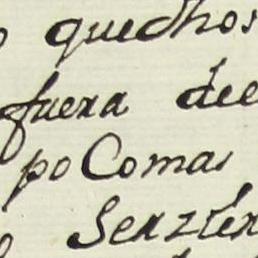 quedhos
fuera dee
po Comas
Serzier